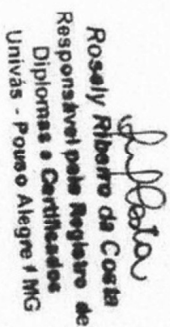 Rosaly Ribeiro da Costa
Responsável pelo Registro de
Diplomas e Certificados
Univás - Pouso Alegre / MG